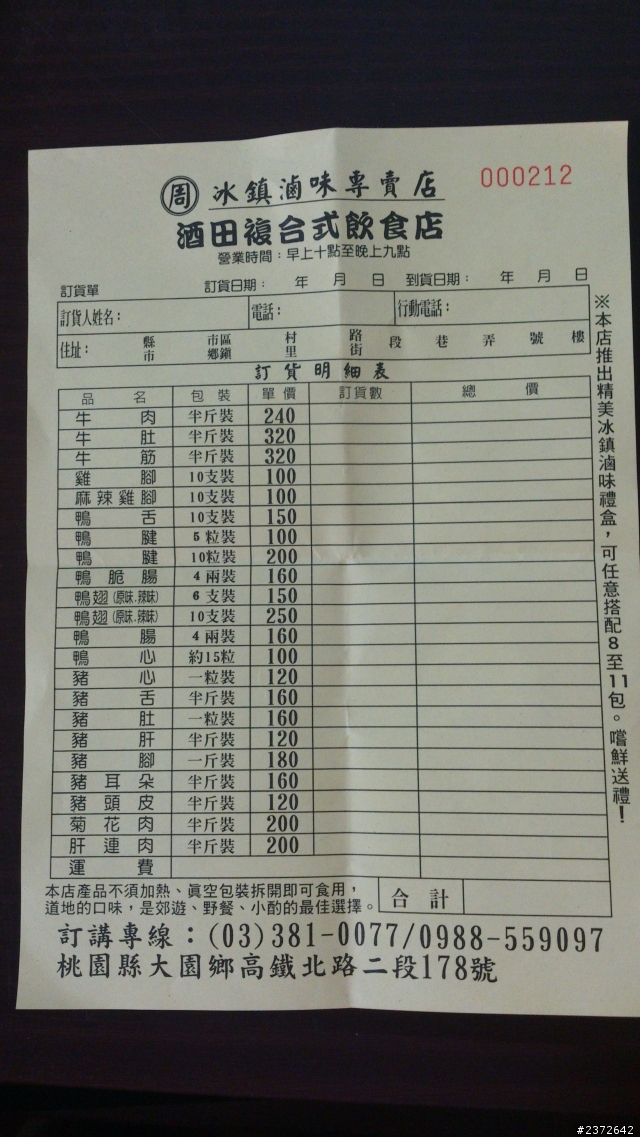 周 冰鎮滷味專賣店 000212
酒田複合式飲食店
營業時間:早上十點至晚上九點
訂貨單 訂貨日期: 年 月 日 到貨日期: 年 月 日
訂貨人姓名: 電話: 行動電話:
住址: 縣市 市區鄉鎮 村里 路街 段 巷 弄 號 樓
訂貨明細表
品名 包裝 單價 訂貨數 總價
牛肉 半斤裝 240
牛肚 半斤裝 320
牛筋 半斤裝 320
雞腳 10支裝 100
麻辣雞腳 10支裝 100
鴨舌 10支裝 150
鴨腱 5粒裝 100
鴨腱 10粒裝 200
鴨脆腸 4兩裝 160
鴨翅(原味.辣味) 6支裝 150
鴨翅(原味.辣味) 10支裝 250
鴨腸 4兩裝 160
鴨心 約15粒 100
豬心 一粒裝 120
豬舌 半斤裝 160
豬肚 一粒裝 160
豬肝 半斤裝 120
豬腳 一斤裝 180
豬耳朵 半斤裝 160
豬頭皮 半斤裝 120
菊花肉 半斤裝 200
肝連肉 半斤裝 200
運費
※本店推出精美冰鎮滷味禮盒,可任意搭配8至11包。嚐鮮送禮!
本店產品不須加熱、真空包裝拆開即可食用,
道地的口味,是郊遊、野餐、小酌的最佳選擇。
合計
訂講專線:(03)381-0077/0988-559097
桃園縣大園鄉高鐵北路二段178號
#2372642